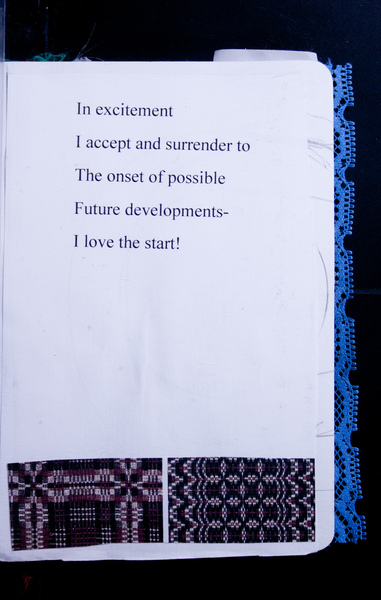 In excitement
I accept and surrender to
The onset of possible
Future developments-
I love the start!